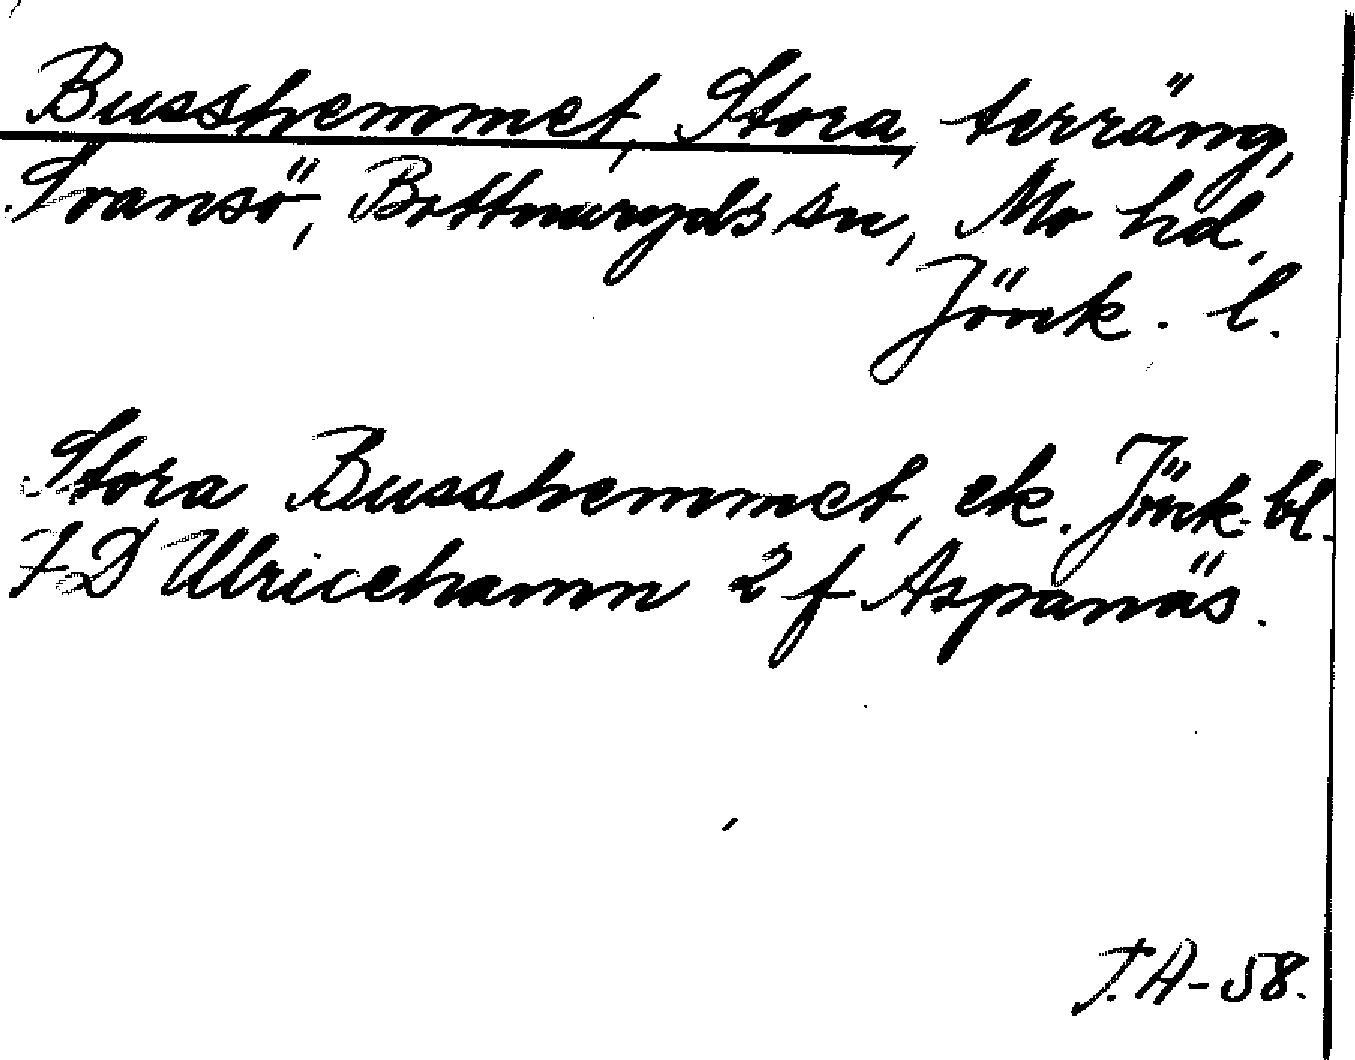 Busshemmet, Stora, terräng,
Svansö, Bottnaryds sn, Mo hd,
Jönk. l.
Stora Busshemmet, ek. Jönk. bl.
7 D Ulricehamn 2 f Aspanäs.
J.A-58.